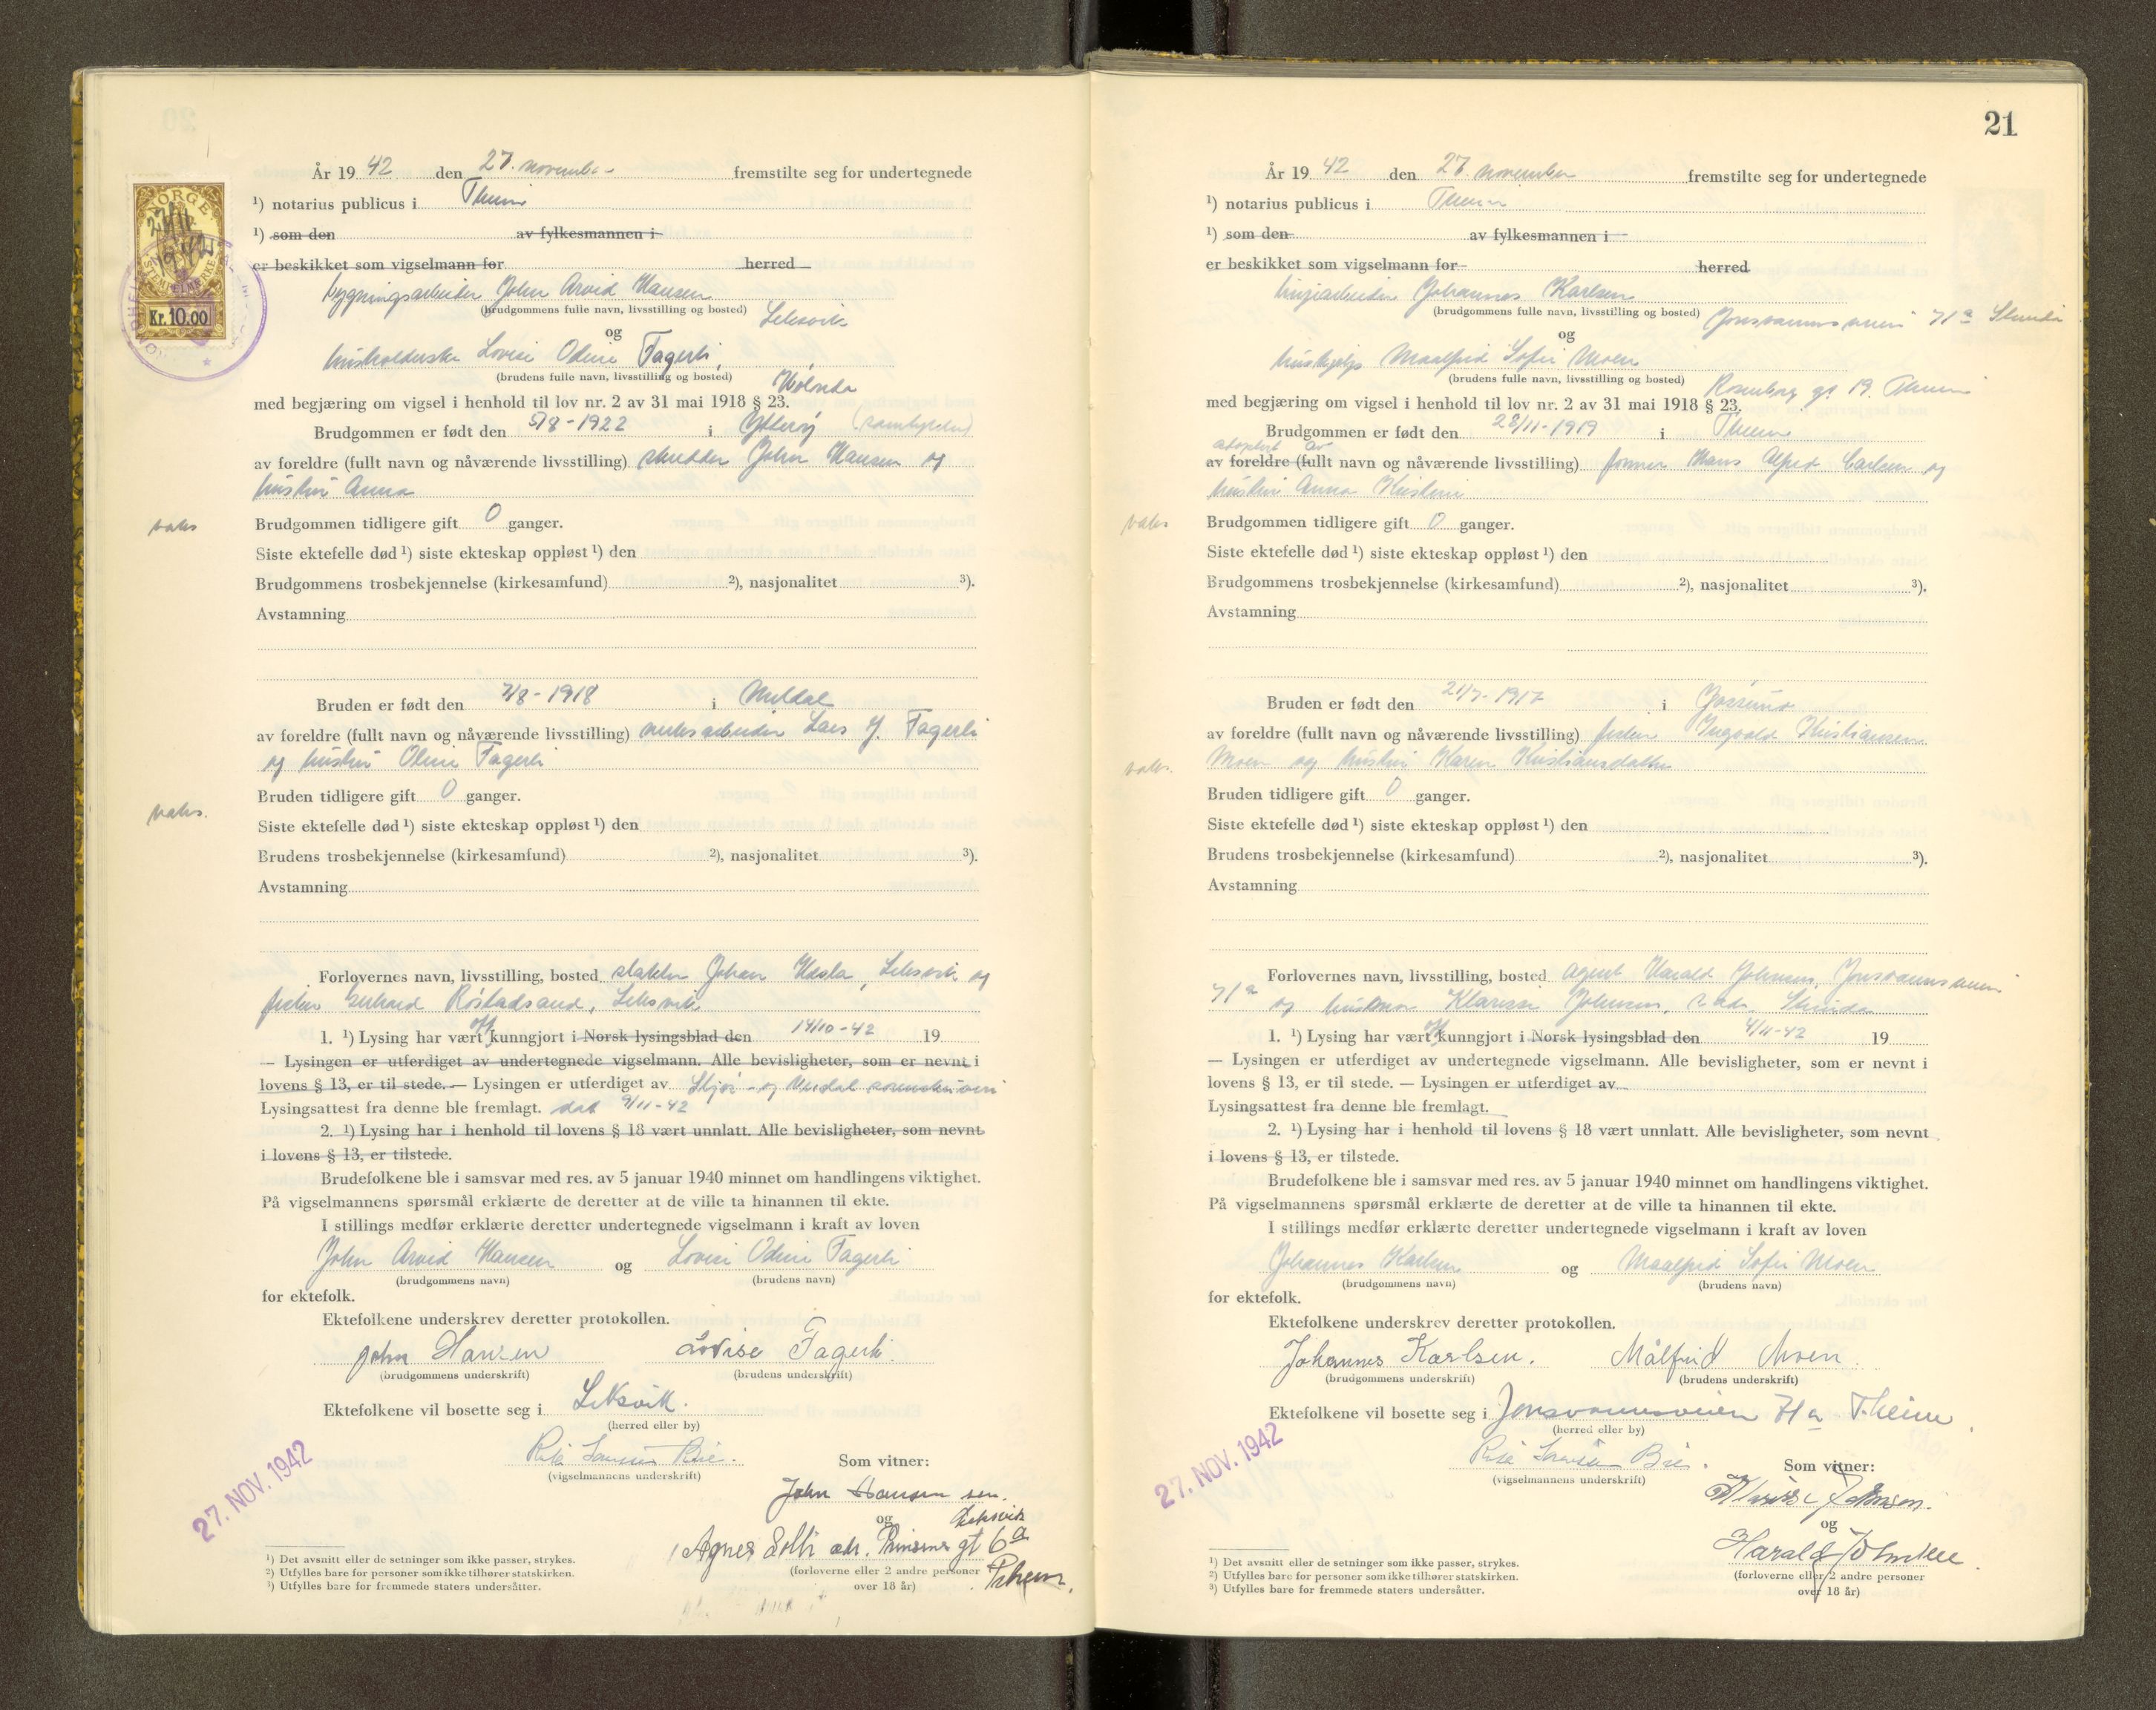 År 19 42 den 27. november fremstilte seg for undertegnede
¹) notarius publicus i Theim
¹) som den av fylkesmannen i
er beskikket som vigselmann for herred
NORGE
27/11
1942
Kr. 10.00
bygningsarbeider John Arvid Hansen
(brudgommens fulle navn, livsstilling og bosted) Leksvik
og
husholderske Lovise Odine Fagerli,
(brudens fulle navn, livsstilling og bosted) Hølonda
med begjæring om vigsel i henhold til lov nr. 2 av 31 mai 1918 § 23.
Brudgommen er født den 5/8 - 1922 i Ytterøy
av foreldre (fullt navn og nåværende livsstilling) skredder John Hansen og
hustru Anna
vaks
Brudgommen tidligere gift 0 ganger.
Siste ektefelle død ¹) siste ekteskap oppløst ¹) den
Brudgommens trosbekjennelse (kirkesamfund) ²), nasjonalitet ³).
Avstamning
Bruden er født den 7/8 - 1918 i Meldal
av foreldre (fullt navn og nåværende livsstilling) verksarbeider Lars J. Fagerli
og hustru Oline Fagerli
Bruden tidligere gift 0 ganger.
vaks.
Siste ektefelle død ¹) siste ekteskap oppløst ¹) den
Brudens trosbekjennelse (kirkesamfund) ²), nasjonalitet ³).
Avstamning
Forlovernes navn, livsstilling, bosted slakter Johan Leksvik og
fisker Røstadsand, Leksvik
1. ¹) Lysing har vært off. kunngjort i Norsk lysingsblad den 14/10 - 42 19
— Lysingen er utferdiget av undertegnede vigselmann. Alle bevisligheter, som er nevnt i
lovens § 13, er til stede. — Lysingen er utferdiget av Stjør- og Verdal sorenskriveri
Lysingsattest fra denne ble fremlagt. dat 9/11 - 42
2. ¹) Lysing har i henhold til lovens § 18 vært unnlatt. Alle bevisligheter, som nevnt
i lovens § 13, er tilstede.
Brudefolkene ble i samsvar med res. av 5 januar 1940 minnet om handlingens viktighet.
På vigselmannens spørsmål erklærte de deretter at de ville ta hinannen til ekte.
I stillings medfør erklærte deretter undertegnede vigselmann i kraft av loven
John Arvid Hansen og Lovise Odine Fagerli
(brudgommens navn) (brudens navn)
for ektefolk.
Ektefolkene underskrev deretter protokollen.
John Hansen Lovise Fagerli.
(brudgommens underskrift) (brudens underskrift)
Ektefolkene vil bosette seg i Leksvik.
(herred eller by)
27. NOV. 1942
(vigselmannens underskrift)
Som vitner:
John Hansen sen.
og Leksvik
Agnes Solli adr. Prinsens gt 6a
(forloverne eller 2 andre personer Trheim.
over 18 år)
¹) Det avsnitt eller de setninger som ikke passer, strykes.
²) Utfylles bare for personer som ikke tilhører statskirken.
³) Utfylles bare for fremmede staters undersåtter.
21
År 19 42 den 27 november fremstilte seg for undertegnede
¹) notarius publicus i Theim
¹) som den av fylkesmannen i
er beskikket som vigselmann for herred
Johannes Karlsen
(brudgommens fulle navn, livsstilling og bosted) Jonsvannsveien 71 a Strinda
og
hushjelp Maalfrid Sofie Moen
(brudens fulle navn, livsstilling og bosted) Rosenborg gt 19. Theim
med begjæring om vigsel i henhold til lov nr. 2 av 31 mai 1918 § 23.
Brudgommen er født den 28/11 - 1919 i Theim
adoptert av
av foreldre (fullt navn og nåværende livsstilling) former Hans Alfred Carlsen og
hustru Anna Kristine
vaks
Brudgommen tidligere gift 0 ganger.
Siste ektefelle død ¹) siste ekteskap oppløst ¹) den
Brudgommens trosbekjennelse (kirkesamfund) ²), nasjonalitet ³).
Avstamning
Bruden er født den 21/7 - 1917 i Jøssund
av foreldre (fullt navn og nåværende livsstilling) fisker Ingvald Kristiansen
Moen og hustru Karen Kristiansdatter
vaks.
Bruden tidligere gift 0 ganger.
Siste ektefelle død ¹) siste ekteskap oppløst ¹) den
Brudens trosbekjennelse (kirkesamfund) ²), nasjonalitet ³).
Avstamning
Forlovernes navn, livsstilling, bosted agent Harald Johnsen, Jonsvannsveien
71 a og husmor Klarisse Johnsen, s. adr. Strinda
1. ¹) Lysing har vært off. kunngjort i Norsk lysingsblad den 4/11 - 42 19
— Lysingen er utferdiget av undertegnede vigselmann. Alle bevisligheter, som er nevnt i
lovens § 13, er til stede. — Lysingen er utferdiget av
Lysingsattest fra denne ble fremlagt.
2. ¹) Lysing har i henhold til lovens § 18 vært unnlatt. Alle bevisligheter, som nevnt
i lovens § 13, er tilstede.
Brudefolkene ble i samsvar med res. av 5 januar 1940 minnet om handlingens viktighet.
På vigselmannens spørsmål erklærte de deretter at de ville ta hinannen til ekte.
I stillings medfør erklærte deretter undertegnede vigselmann i kraft av loven
Johannes Karlsen og Maalfrid Sofie Moen
(brudgommens navn) (brudens navn)
for ektefolk.
Ektefolkene underskrev deretter protokollen.
Johannes Karlsen. Målfrid Moen.
(brudgommens underskrift) (brudens underskrift)
Ektefolkene vil bosette seg i Jonsvannsveien 71 a T.heim
(herred eller by)
27. NOV. 1942
(vigselmannens underskrift)
Som vitner:
Klarisse Johnsen.
og
Harald Johnsen.
(forloverne eller 2 andre personer
over 18 år)
¹) Det avsnitt eller de setninger som ikke passer, strykes.
²) Utfylles bare for personer som ikke tilhører statskirken.
³) Utfylles bare for fremmede staters undersåtter.